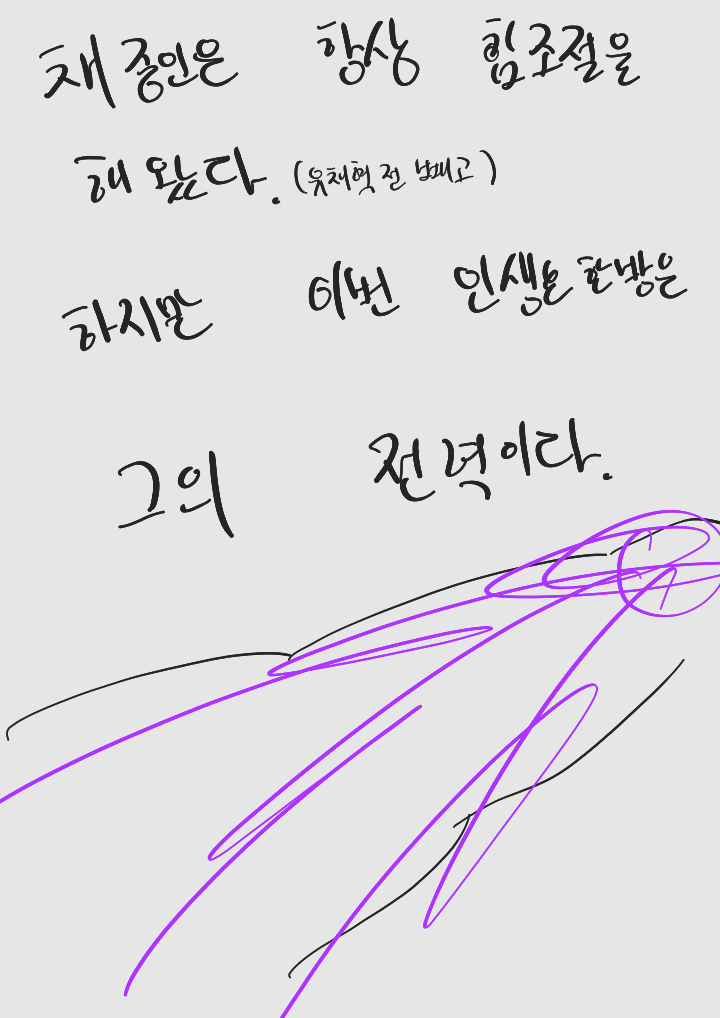 채종인은 항상 힘조절을
해 왔다. (윷채혁 전 빼고)
하지만 이번 인생을 한방은
그의 전력이다.